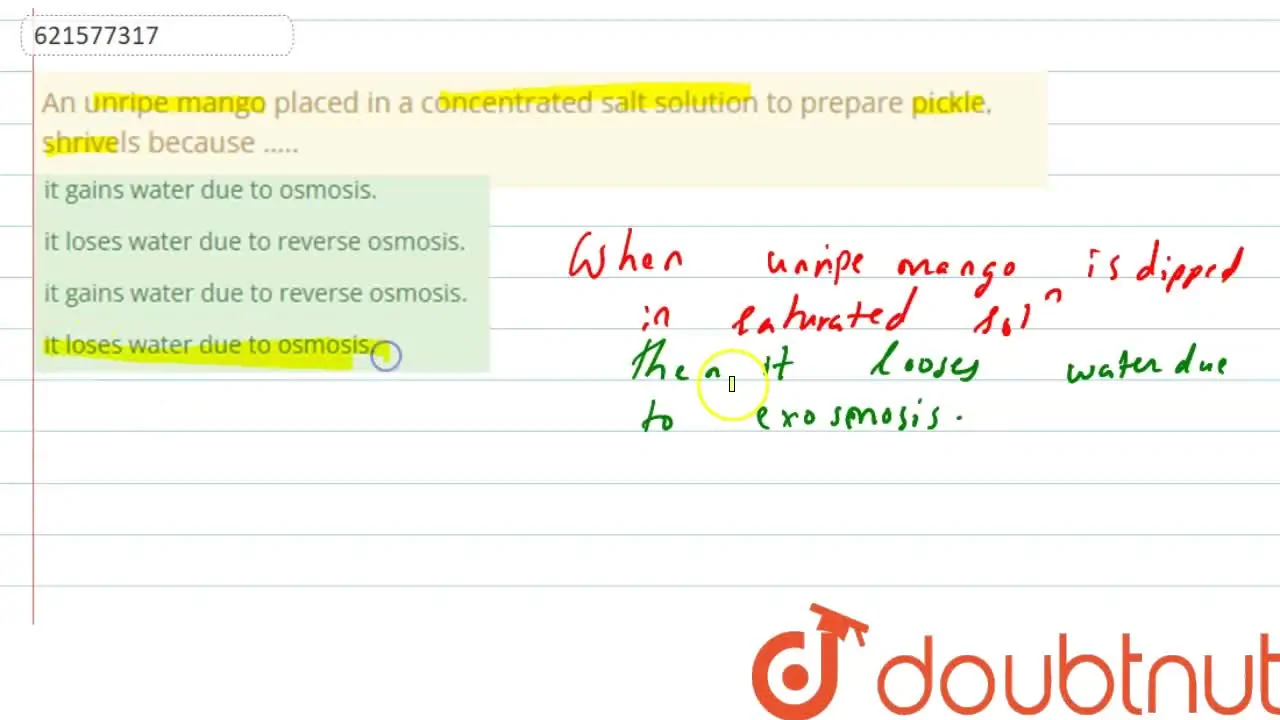 621577317
An unripe mango placed in a concentrated salt solution to prepare pickle,
shrivels because .....
it gains water due to osmosis.
it loses water due to reverse osmosis.
it gains water due to reverse osmosis.
it loses water due to osmosis.
When unripe mango is dipped
in saturated solⁿ
then it looses water due
to exosmosis.
doubtnut